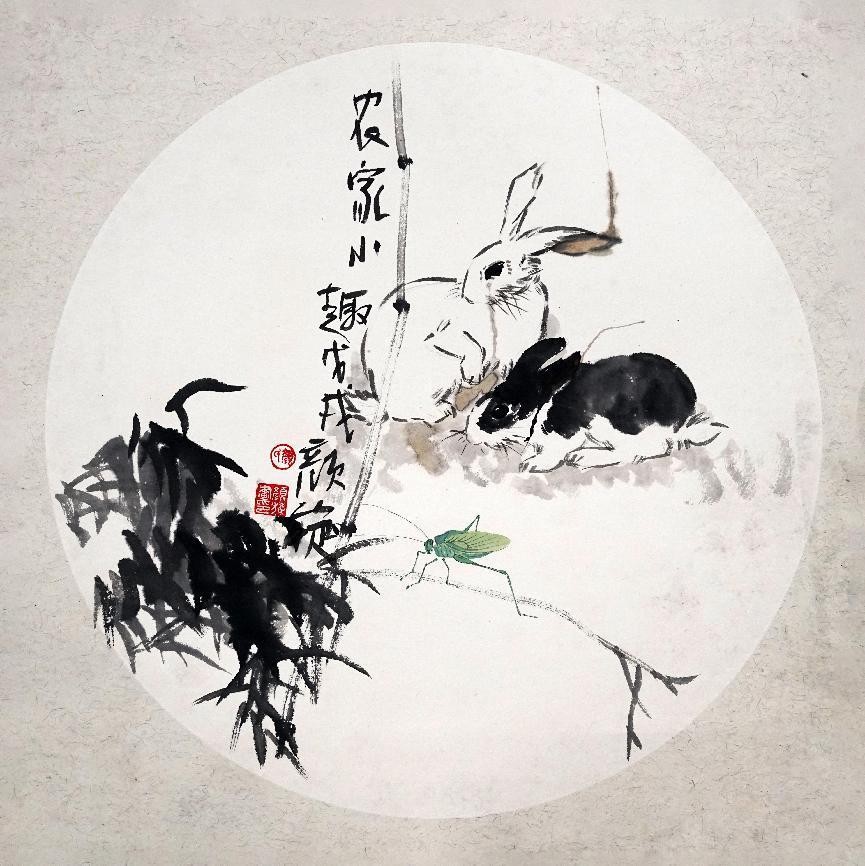 农家小趣戊戌颜旋